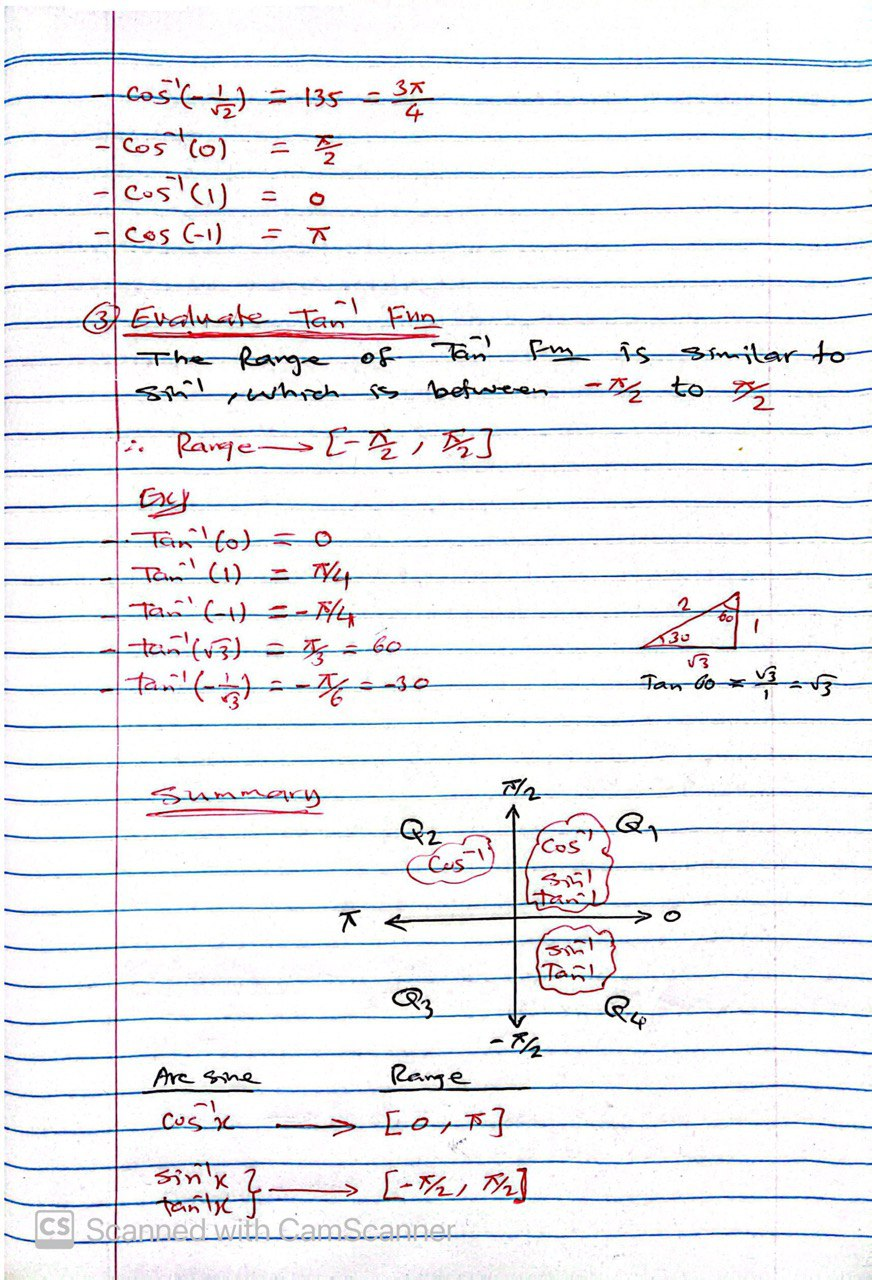 - cos⁻¹(-1/√2) = 135 = 3π/4
- cos⁻¹(0) = π/2
- cos⁻¹(1) = 0
- cos(-1) = π
③ Evaluate Tan⁻¹ Fun
The Range of Tan⁻¹ Fun is similar to
sin⁻¹, which is between -π/2 to π/2
∴ Range → [-π/2, π/2]
Exs
- Tan⁻¹(0) = 0
- Tan⁻¹(1) = π/4
- Tan⁻¹(-1) = -π/4
- tan⁻¹(√3) = π/3 = 60
- tan⁻¹(-1/√3) = -π/6 = -30
2
60
1
30
√3
Tan 60 = √3/1 = √3
Summary
π/2
Q2
Cos⁻¹
Cos⁻¹
Sin⁻¹
tan⁻¹
Q1
π
0
Sin⁻¹
Tan⁻¹
Q3
Q4
-π/2
Arc sine Range
cos⁻¹x → [0, π]
sin⁻¹x
tan⁻¹x } → [-π/2, π/2]
CS Scanned with CamScanner